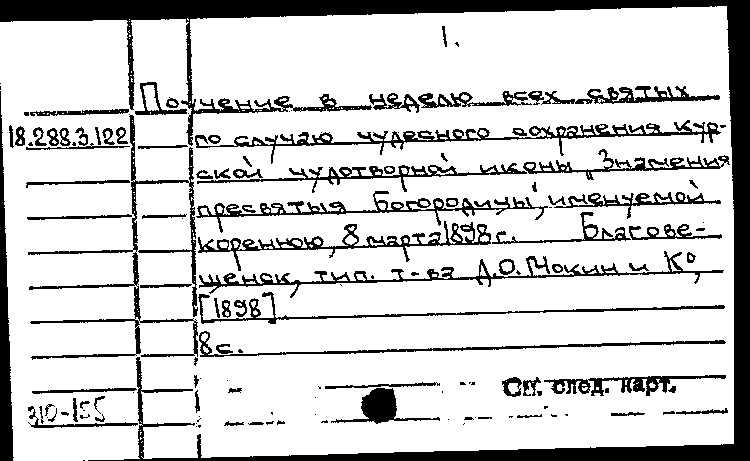 1.
Поучение в неделю всех святых
18.288.3.122 по случаю чудесного сохранения Кур-
ской чудотворной иконы „Знамения
пресвятыя Богородицы", именуемой
коренною, 8 марта 1898 г. Благове-
щенск, тип. т-ва Д.О. Мокин и Кº,
[1898].
8 с.
См. след. карт.
310-155